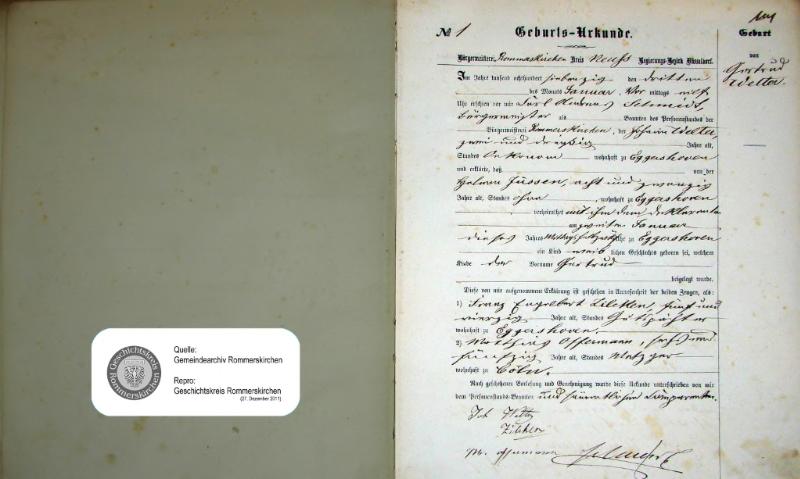 Geschichtskreis
Rommerskirchen
Quelle:
Gemeindearchiv Rommerskirchen
Repro:
Geschichtskreis Rommerskirchen
(27. Dezember 2011)
№ 1 Geburts-Urkunde.
Bürgermeisterei Rommerskirchen Kreis Neuß Regierungs-Bezirk Düsseldorf.
Im Jahre tausend achthundert siebenzig den dritten
des Monats Januar Vor mittags
Uhr erschien vor mir Carl Schmidt,
Bürgermeister als Beamten des Personenstandes der
Bürgermeisterei Rommerskirchen, der Johann Welter,
zwei und dreißig Jahre alt,
Standes Oekonom wohnhaft zu Eggershoven
und erklärte, daß von der
Jüssen, acht und zwanzig
Jahre alt, Standes ohne, wohnhaft zu Eggershoven
verheirathet mit ihm dem Declaranten
am zweiten Januar
dieses Jahres zu Eggershoven
ein Kind weib lichen Geschlechts geboren sei, welchem
Kinde der Vorname Gertrud
beigelegt wurde.
Diese von mir aufgenommene Erklärung ist geschehen in Anwesenheit der beiden Zeugen, als:
1) Franz Engelbert Zilikken, fünf und
vierzig Jahre alt, Standes Gutspächter
wohnhaft zu Eggershoven.
2) Offermann, sechs und
fünfzig Jahre alt, Standes Metzger
wohnhaft zu Cöln.
Nach geschehener Vorlesung und Genehmigung wurde diese Urkunde unterschrieben von mir
dem Personenstands-Beamten und sämmtlichen Comparenten.
Joh Welter
Zilikken
M. Offermann Schmidt
Geburt
von
Gertrud
Welter.